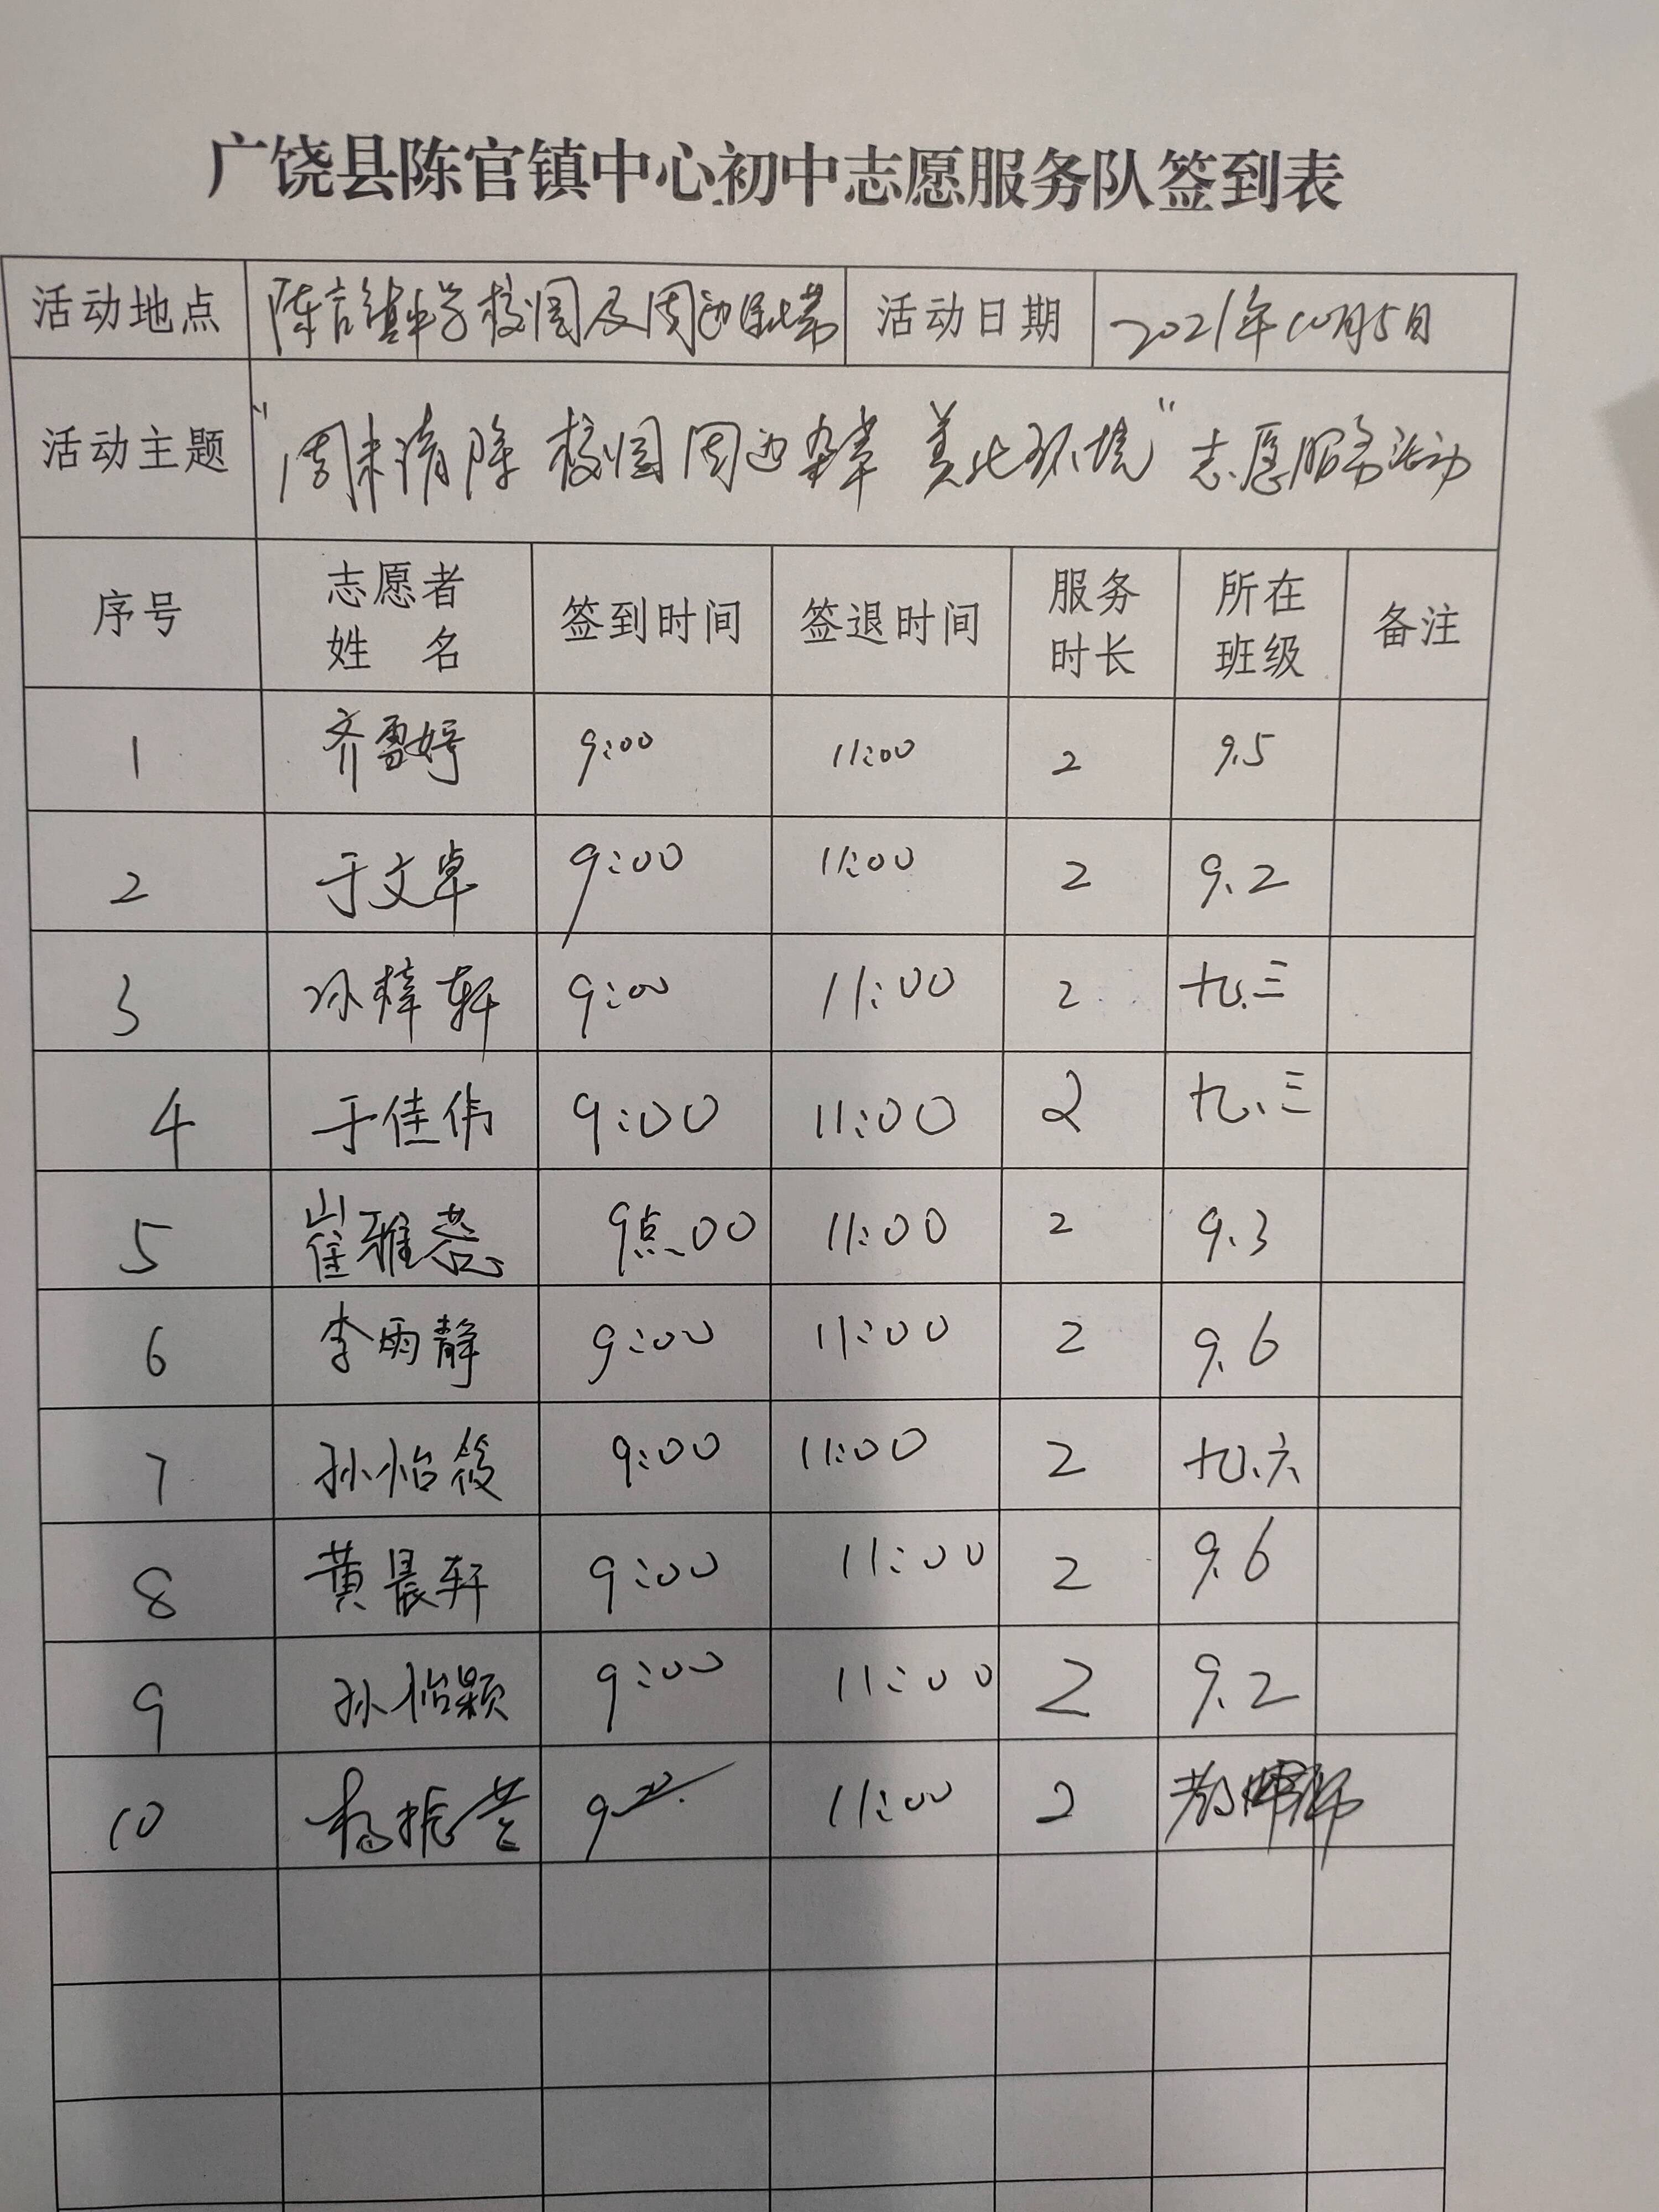 广饶县陈官镇中心初中志愿服务队签到表
活动地点 陈官镇中学校园及周边绿化带 活动日期 2021年10月5日
活动主题 “周末清除校园周边杂草 美化环境”志愿服务活动
序号 志愿者姓名 签到时间 签退时间 服务时长 所在班级 备注
1 齐雪婷 9:00 11:00 2 9.5
2 于文卓 9:00 11:00 2 9.2
3 孙梓轩 9:00 11:00 2 九.三
4 于佳伟 9:00 11:00 2 九.三
5 崔雅蕊 9点00 11:00 2 9.3
6 李雨静 9:00 11:00 2 9.6
7 孙怡筱 9:00 11:00 2 九.六
8 黄晨轩 9:00 11:00 2 9.6
9 孙怡颖 9:00 11:00 2 9.2
10 9 11:00 2